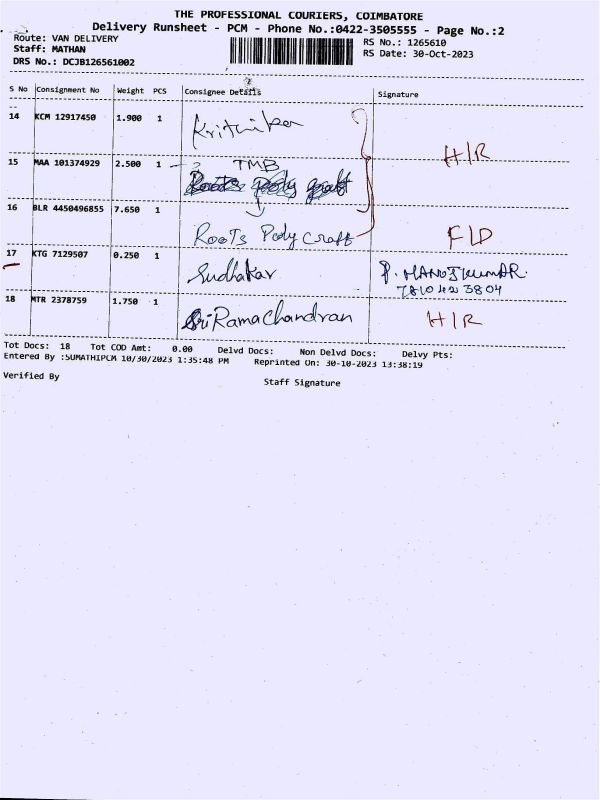 THE PROFESSIONAL COURIERS, COIMBATORE
Delivery Runsheet - PCM - Phone No.:0422-3505555 - Page No.:2
Route: VAN DELIVERY
Staff: MATHAN
DRS No.: DCJB126561002
RS No.: 1265610
RS Date: 30-Oct-2023
S No Consignment No Weight PCS Consignee Details Signature
14 KCM 12917450 1.900 1 Krithika
15 MAA 101374929 2.500 1 TMB H/R
Roots Poly Craft
16 BLR 4450496855 7.650 1 Roots Poly Craft F/D
17 KTG 7129507 0.250 1 Sudhakar P. MANOJKUMAR
7810423804
18 MTR 2378759 1.750 1 Sri Ramachandran H/R
Tot Docs: 18 Tot COD Amt: 0.00 Delvd Docs: Non Delvd Docs: Delvy Pts:
Entered By :SUMATHIPCM 10/30/2023 1:35:48 PM Reprinted On: 30-10-2023 13:38:19
Verified By
Staff Signature